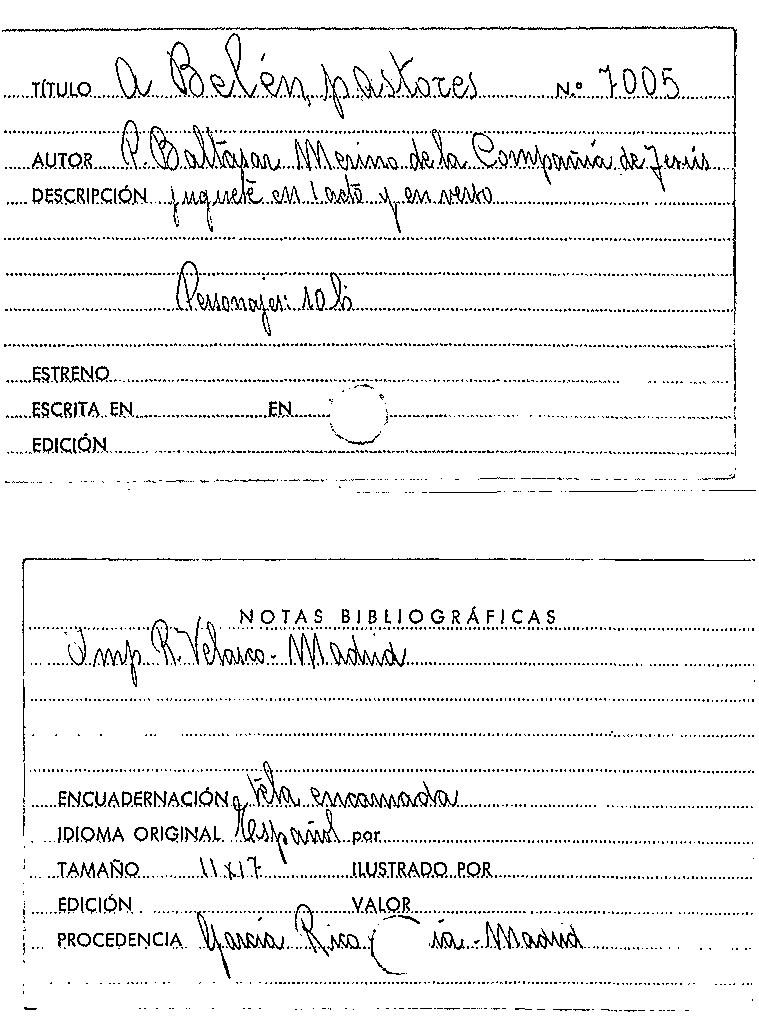 TÍTULO A Belén, pastores N.º 7005
AUTOR P. Baltasar Merino de la Compañía de Jesús
DESCRIPCIÓN juguete en 1 acto y en verso
Personajes: 10
ESTRENO
ESCRITA EN EN
EDICIÓN
NOTAS BIBLIOGRÁFICAS
Imp. R. Velasco - Madrid
ENCUADERNACIÓN tela encarnada
IDIOMA ORIGINAL Español por
TAMAÑO 11x17 ILUSTRADO POR
EDICIÓN VALOR
PROCEDENCIA García Rico - Madrid